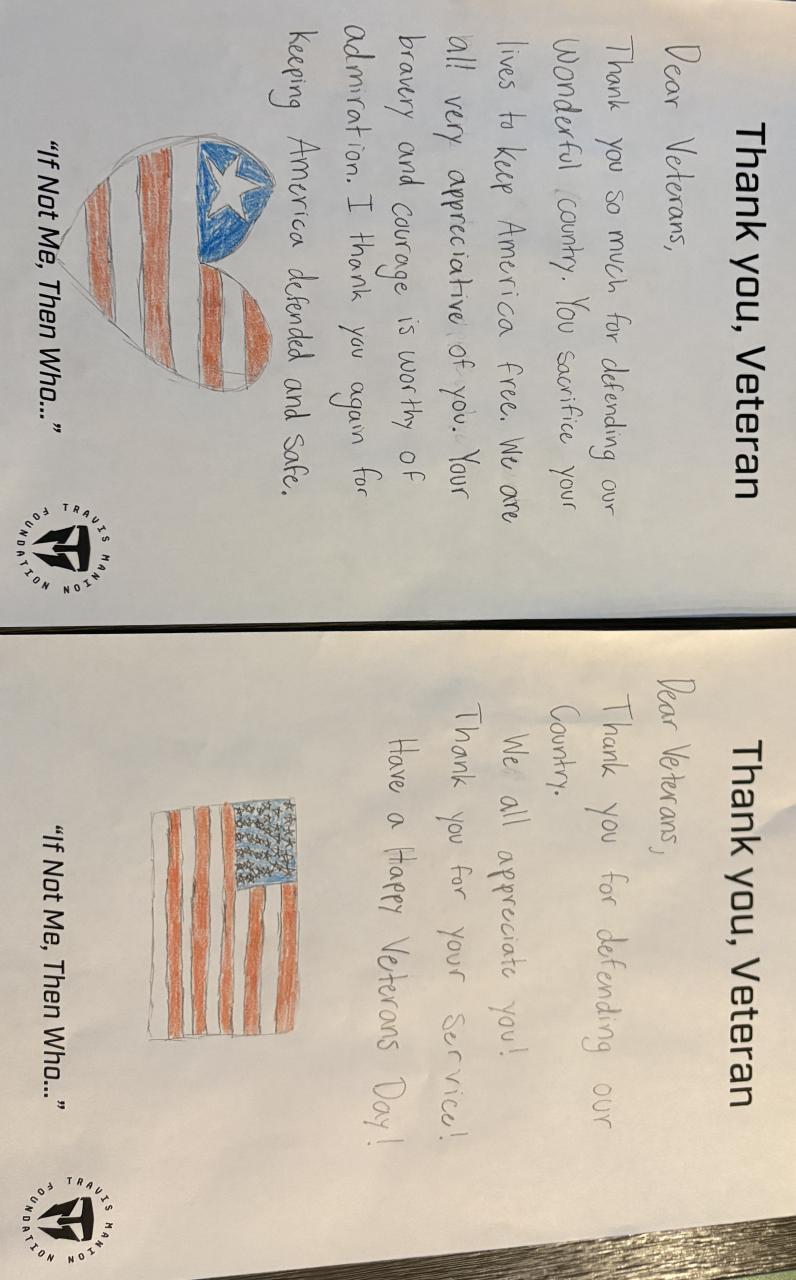 Thank you, Veteran
Dear Veterans,
Thank you so much for defending our
Wonderful country. You sacrifice your
lives to keep America free. We are
all very appreciative of you. Your
bravery and courage is worthy of
admiration. I thank you again for
keeping America defended and safe.
"If Not Me, Then Who..."
TRAVIS MANION FOUNDATION
Thank you, Veteran
Dear Veterans,
Thank you for defending our
Country.
We all appreciate you!
Thank you for your service!
Have a Happy Veterans Day!
"If Not Me, Then Who..."
TRAVIS MANION FOUNDATION